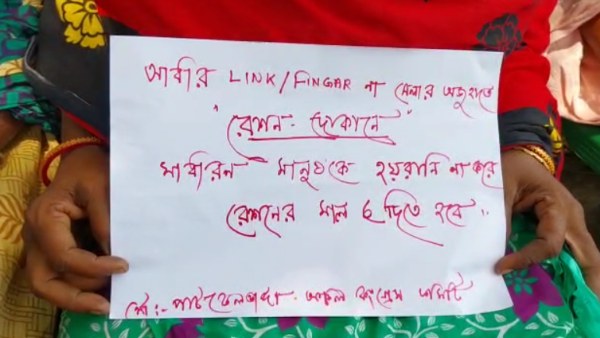 আধার LINK/FINGAR না মেলার অজুহাতে
"রেশন- দোকানে"
সাধারন মানুষকে হয়রানি না করে
রেশনের মাল ও দিতে হবে..
অঞ্চল কংগ্রেস কমিটি